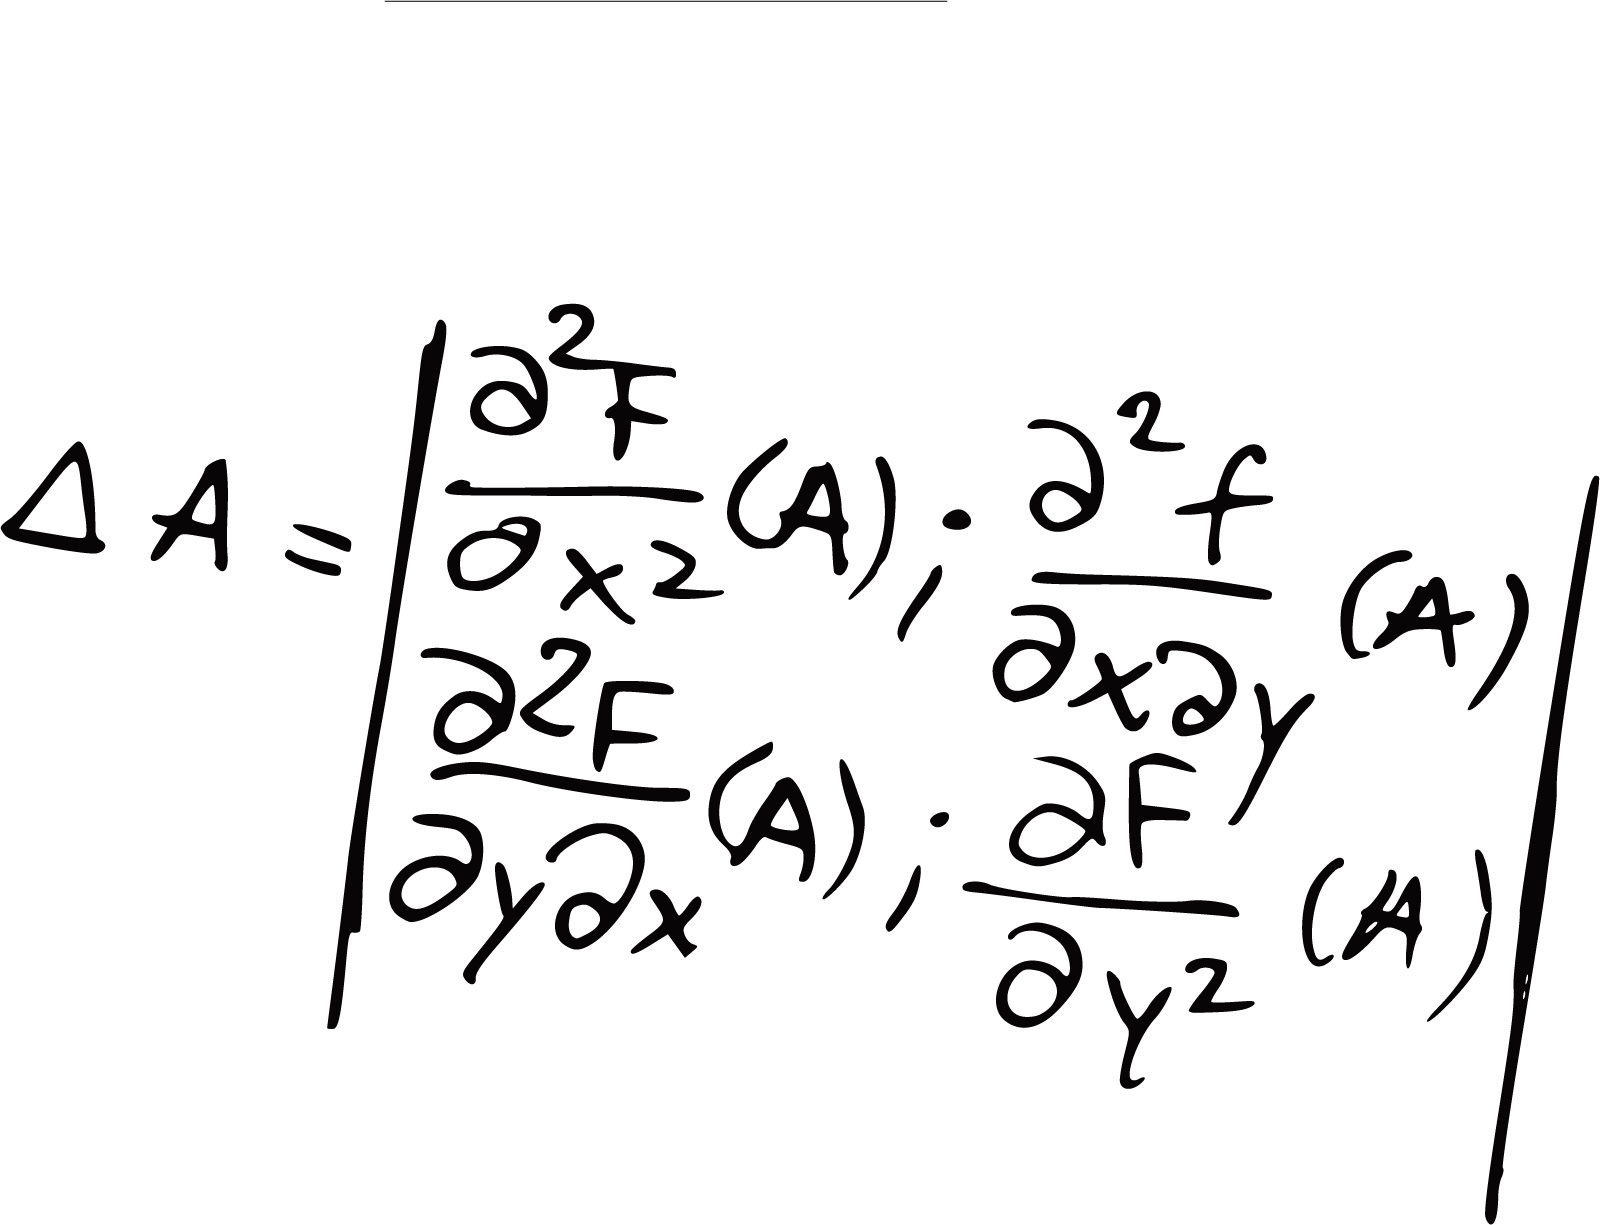 ΔA = | ∂²F/∂x² (A) ; ∂²f/∂x∂y (A) |
| ∂²F/∂y∂x (A) ; ∂F/∂y² (A) |